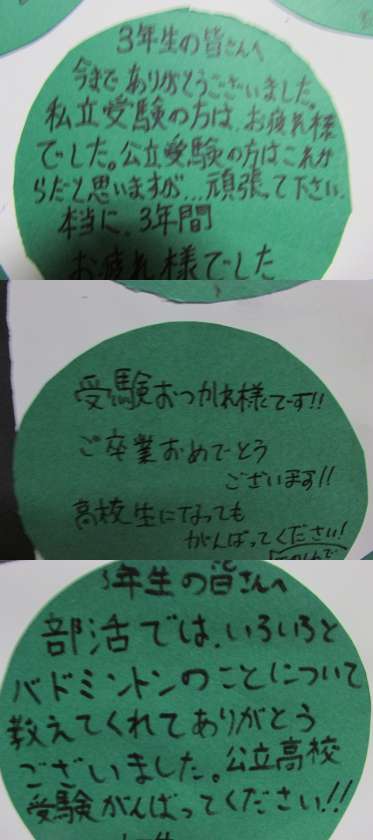 3年生の皆さんへ
今まで、ありがとうございました。
私立受験の方は、お疲れ様
でした。公立受験の方はこれか
らだと思いますが…頑張って下さい。
本当に、3年間
お疲れ様でした
受験おつかれ様です!!
ご卒業おめでとう
ございます!!
高校生になっても
がんばってください!
3年生の皆さんへ
部活では、いろいろと
バドミントンのことについて
教えてくれてありがとう
ございました。公立高校
受験がんばってください!!